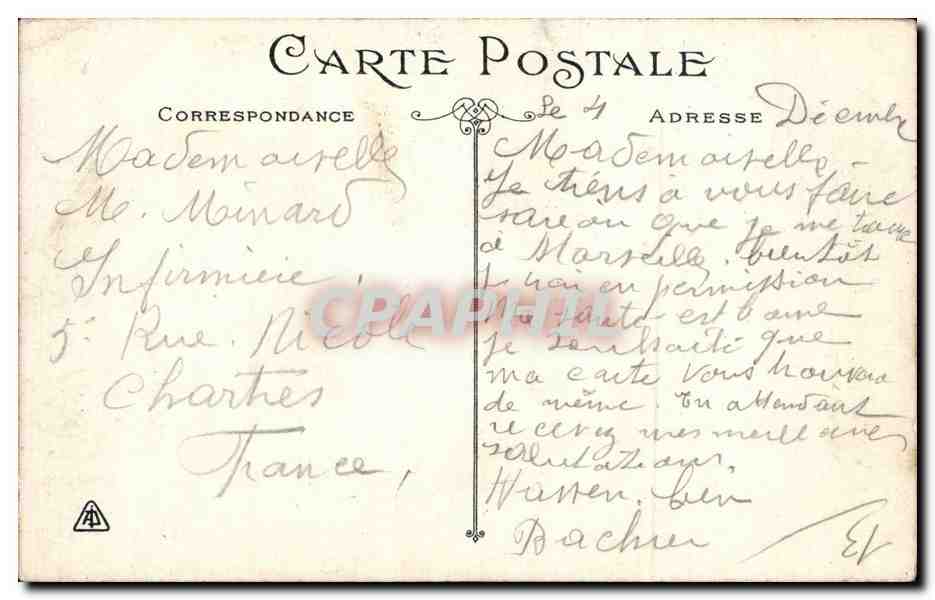 CARTE POSTALE
CORRESPONDANCE
ADRESSE
Mademoiselle
M. Minard
Infirmiere,
5 Rue. Nicole
Chartres
France,
Le 4 Décembre
Mademoiselle
Je tiens à vous faire
savoir que je me trouve
à Marseille, bientôt
je irai en permission
Ma santé est bonne
je souhaite que
ma carte vous trouvera
de même. En attendant
recevez mes meilleures
salutations.
Hassen. ben
Bachir
CPAPHIL